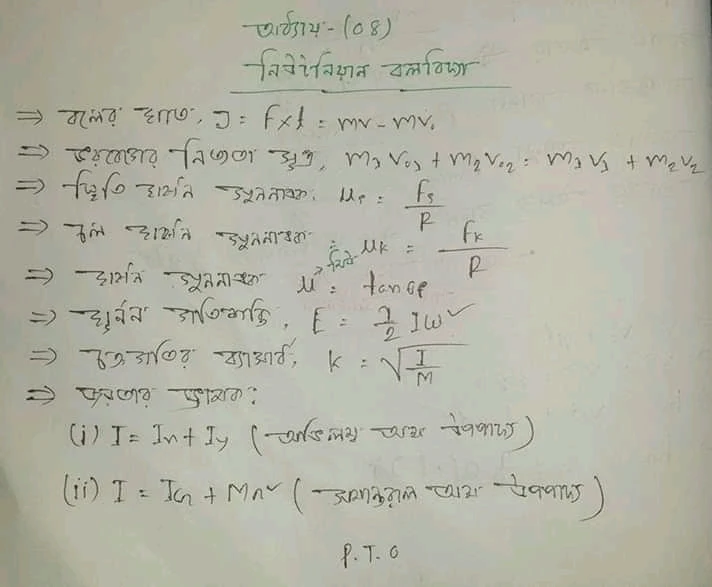 অধ্যায় - (08)
নিউটনিয়ান বলবিদ্যা
⇒ বলের ঘাত, J = F × t = mv - mv₀
⇒ ভরবেগের নিত্যতা সূত্র, m₁v₀₁ + m₂v₀₂ = m₁v₁ + m₂v₂
⇒ স্থিতি ঘর্ষন গুননাংক, μs = fs/R
⇒ চল ঘর্ষন গুননাংক = μk = fk/R
⇒ ঘর্ষন গুননাংক μ = tan
⇒ ঘূর্নন গতিশক্তি, E = 1/2 Iω²
⇒ চক্রগতির ব্যাসার্ধ, K = √(I/M)
⇒ জড়তার ভ্রামক:
(i) I = Ix + Iy (অভিলম্ব অক্ষ উপপাদ্য)
(ii) I = IG + Mh² (সমান্তরাল অক্ষ উপপাদ্য)
P.T.O